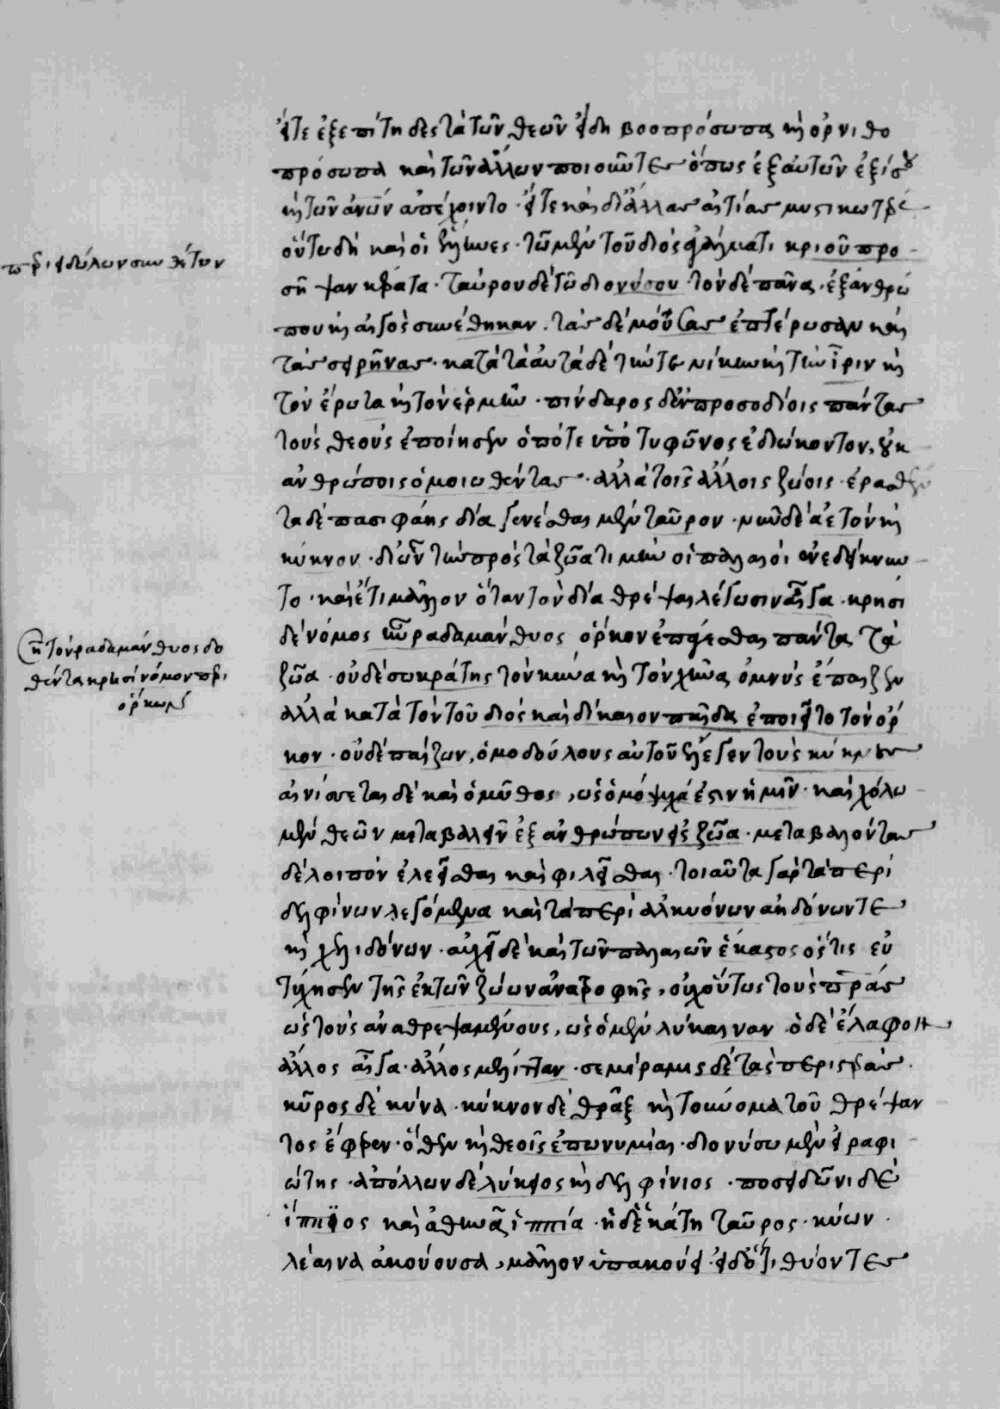 εἴτε ἐξεπίτηδες τὰ τῶν θεῶν εἴδη βοοπρόσωπα καὶ ὀρνιθο
πρόσωπα καὶ τῶν ἄλλων ποιοῦντες ὅπως ἐξ αὐτῶν ἐξίσου
καὶ τῶν ἀνῶν ἀπέχοιντο εἴτε καὶ δι' ἄλλας αἰτίας μυστικωτέρας
οὕτω δὴ καὶ οἱ ἕλληνες· τῶ μὲν τοῦ διὸς ἀγάλματι κριοῦ προ
περὶ εἰδώλων συνθέτων
σῆψαν κρᾶτα· ταύρου δὲ τῶ διονύσου· τὸν δὲ πᾶνα· ἐξ ἀνθρώ
που καὶ αἰγὸς συνέθηκαν. τὰς δὲ μούσας ἐπτέρωσαν καὶ
τὰς σειρῆνας· κατὰ τὰ αὐτὰ δὲ τήν τε νίκην καὶ τὴν ἶριν καὶ
τὸν ἔρωτα καὶ τὸν ἑρμῆν· πίνδαρος δ' ἐν προσοδίοις πάντας
τοὺς θεοὺς ἐποίησεν ὁπότε ὑπὸ τυφῶνος ἐδιώκοντο, οὐκ
ἀνθρώποις ὁμοιωθέντας· ἀλλὰ τοῖς ἄλλοις ζώοις· ἐρασθέν
τα δὲ πασιφάης δία γενέσθαι μὲν ταῦρον· νῦν δὲ ἀετὸν καὶ
κύκνον· δι' ὧν τὴν πρὸς τὰ ζῶα τιμὴν οἱ παλαιοὶ ἐνεδείκνυν
το· καὶ ἔτι μᾶλλον ὅταν τὸν δία θρέψαι λέγωσιν αἶγα· κρησὶ
δὲ νόμος ἦν ῥαδαμάνθυος ὅρκον ἐπάγεσθαι πάντα τὰ
ὅτι τὸν ῥαδαμάνθυος δο
θέντα κρησὶ νόμον περὶ
ὅρκων
ζῶα· οὐδὲ σωκράτης τὸν κύνα καὶ τὸν χῆνα ὀμνὺς ἔπαιζεν
ἀλλὰ κατὰ τὸν τοῦ διὸς καὶ δίκαιον παῖδα ἐποιεῖτο τὸν ὅρ
κον· οὐδὲ παίζων, ὁμοδούλους αὐτοῦ ἔλεγεν τοὺς κύκνους
αἰνίσσεται δὲ καὶ ὁ μῦθος, ὡς ὁμόψυχά ἐστιν ἡμῖν· καὶ χόλω
μὲν θεῶν μεταβαλεῖν ἐξ ἀνθρώπων εἰς ζῶα· μεταβαλόντας
δὲ λοιπὸν ἐλεεῖσθαι καὶ φιλεῖσθαι· τοιαῦτα γὰρ τὰ περὶ
δελφίνων λεγόμενα καὶ τὰ περὶ ἀλκυόνων ἀηδόνων τε
καὶ χελιδόνων· αὐχεῖ δὲ καὶ τῶν παλαιῶν ἕκαστος ὅστις εὐ
τύχησεν τῆς ἐκ τῶν ζώων ἀνατροφῆς, οὐχ οὕτως τοὺς πατέρας
ὡς τοὺς ἀναθρεψαμένους, ὡς ὁ μὲν λύκαιναν· ὁ δὲ ἔλαφον
ἄλλος αἶγα· ἄλλος μέλιτταν· σεμίραμις δὲ τὰς περιστεράς·
κῦρος δὲ κύνα· κύκνον δὲ θρᾷξ καὶ τοὔνομα τοῦ θρέψαν
τος ἔφερεν· ὅθεν καὶ θεοῖς ἐπωνυμίαι· διονύσω μὲν εἰραφι
ώτης· ἀπόλλων δὲ λύκειος καὶ δελφίνιος· ποσειδῶνι δὲ
ἵππειος καὶ ἀθηνᾶ ἱππία· ἡ δὲ ἑκάτη ταῦρος· κύων·
λέαινα ἀκούουσα, μᾶλλον ὑπακούει· εἰ δὲ ὅτι θύοντες